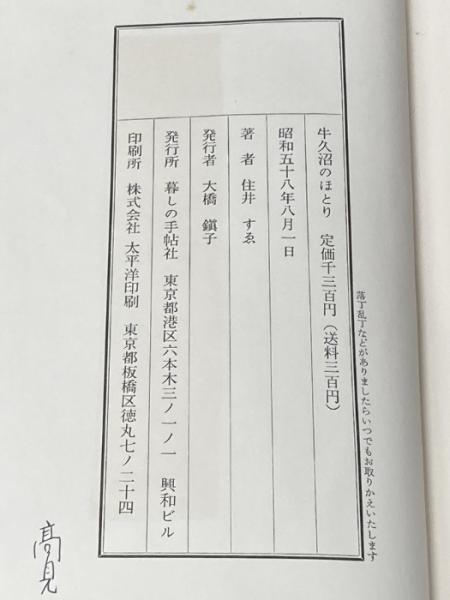 落丁乱丁などがありましたらいつでもお取りかえいたします
牛久沼のほとり 定価千三百円(送料三百円)
昭和五十八年八月一日
著者 住井すゑ
発行者 大橋鎭子
発行所 暮しの手帖社 東京都港区六本木三ノ一ノ一 興和ビル
印刷所 株式会社 太平洋印刷 東京都板橋区徳丸七ノ二十四
髙見